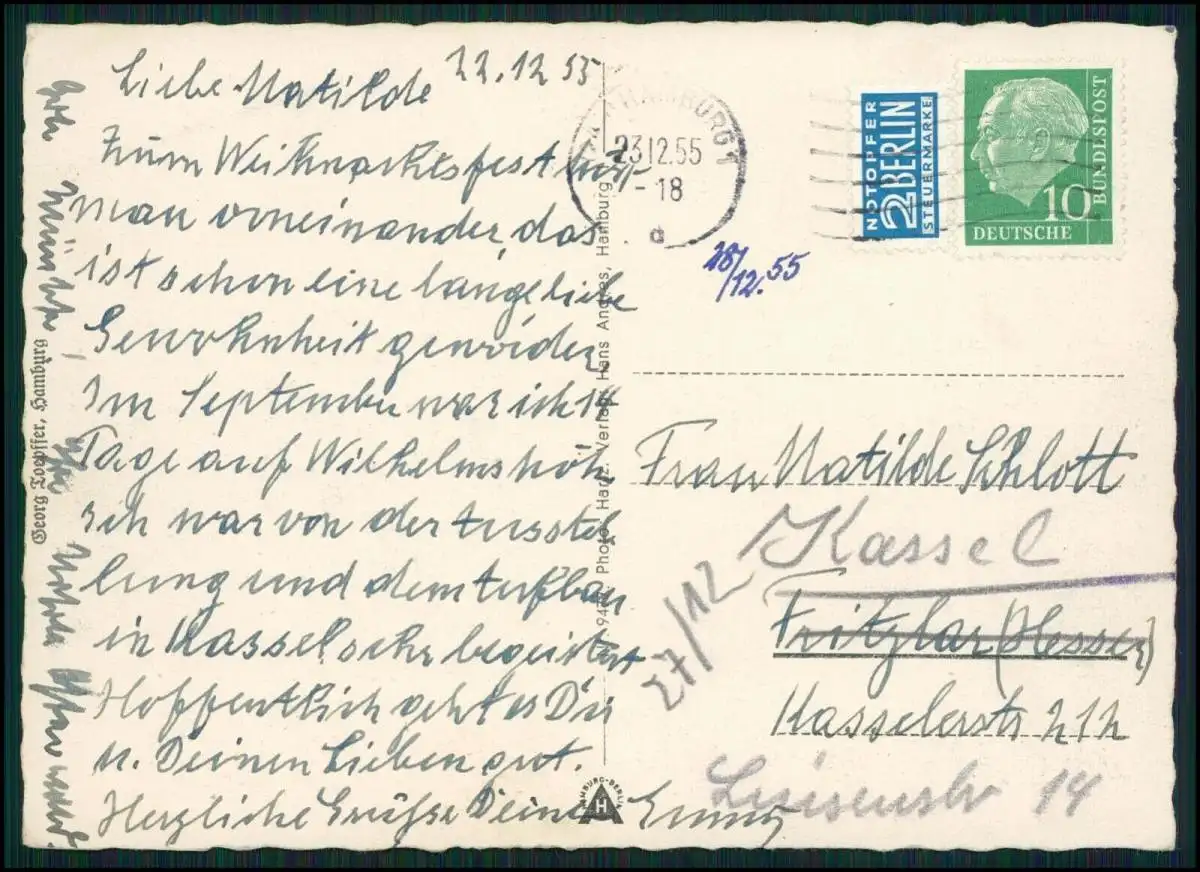 22.12 55
Liebe Matilde
Zum Weihnachtsfest hört
man voneinander, das
ist schon eine lange liebe
Gewohnheit geworden.
Im September war ich 14
Tage auf Wilhelmshöh
ich war von der Ausstel
lung und dem Aufbau
in Kassel sehr begeistert
Hoffentlich geht es Dir
u. Deinen Lieben gut.
Herzliche Grüße Deine
Georg Toepffer, Hamburg
Photo Hartz. Verlag Hans Andres, Hamburg
HAMBURG-BERLIN
H
HAMBURG 1
23.12.55
- 18
a
NOTOPFER
2 BERLIN
STEUERMARKE
10
DEUTSCHE
BUNDESPOST
28/12.55
Frau Matilde Schlott
Kassel
27/12
Fritzlar (Hessen)
Kasselerstr 212
Luisenstr 14